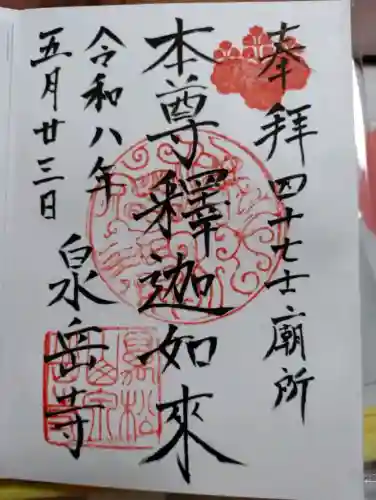 奉拜 四十七士廟所
本尊釋迦如來
令和八年
五月廿三日
泉岳寺